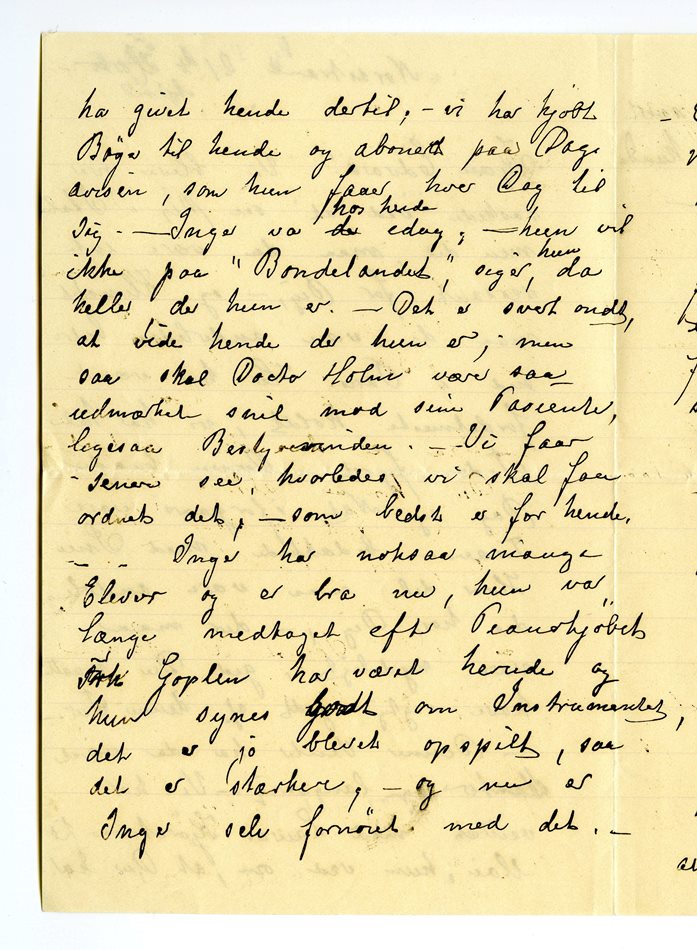 ha givet hende dertil; – vi har kjøbt
Bøger til hende og abonert paa Dags
avisen, som hun faaer hver Dag til
sig. – Inger va hos hende idag; – hun vil
ikke paa "Bondelandet", siger hun, da
heller der hun er. – Det er svert ondt,
at vide hende der hun er; men
saa skal Doctor Holm være saa
udmærket snil mod sine Pasienter,
ligesaa Bestyrerinden. – Vi faar
senere see, hvorledes vi skal faa
ordnet det, – som bedst er for hende.
– " Inger har noksaa mange
Elever og er bra nu, hun var
længe medtaget efter Pianokjøbet
Frk Goplen har været herude og
hun synes godt om Instrumentet,
det er jo blevet opspilt, saa
det er stærkere, – og nu er
Inger selv fornøiet med det. –